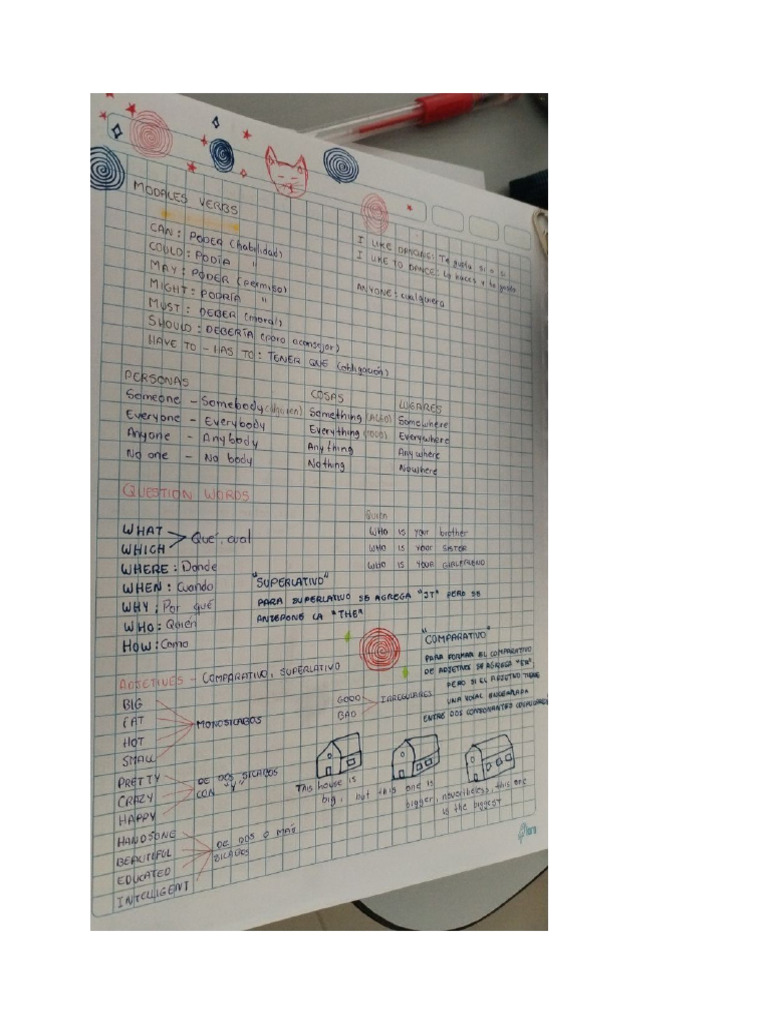 MODALES VERBS
CAN: PODER (habilidad)
COULD: PODÍA "
MAY: PODER (permiso)
MIGHT: PODRÍA "
MUST: DEBER (moral)
SHOULD: DEBERÍA (para aconsejar)
HAVE TO - HAS TO: TENER QUE (obligación)
I LIKE DANCING: Te gusta si o si
I LIKE TO DANCE: Lo haces y te gusta
ANYONE: cualquiera
PERSONAS
Someone - Somebody (alguien)
Everyone - Everybody
Anyone - Anybody
No one - No body
COSAS
Something (ALGO)
Everything (TODO)
Anything
Nothing
LUGARES
Somewhere
Everywhere
Anywhere
Nowhere
QUESTION WORDS
WHAT
WHICH
Qué, cual
WHERE: Donde
WHEN: Cuando
WHY: Por qué
WHO: Quién
HOW: Como
Quien
WHO IS YOUR brother
WHO IS YOUR SISTER
WHO IS YOUR GIRLFRIEND
"SUPERLATIVO"
PARA SUPERLATIVO SE AGREGA "ST" PERO SE
ANTEPONE LA "THE"
"COMPARATIVO"
PARA FORMAR EL COMPARATIVO
DE ADJETIVOS SE AGREGA "ER",
PERO SI EL ADJETIVO TIENE
UNA VOCAL
ENTRE DOS CONSONANTES
ADJETIVES - COMPARATIVO, SUPERLATIVO
BIG
FAT
HOT
SMALL
MONOSILABOS
PRETTY
CRAZY
HAPPY
DE DOS SILABAS
CON "Y"
HANDSONE
BEAUTIFUL
EDUCATED
INTELLIGENT
DE DOS O MÁS
SILABAS
GOOD
BAD
IRREGULARES
This house is
big, but this one is
bigger, nevertheless, this one
is the biggest